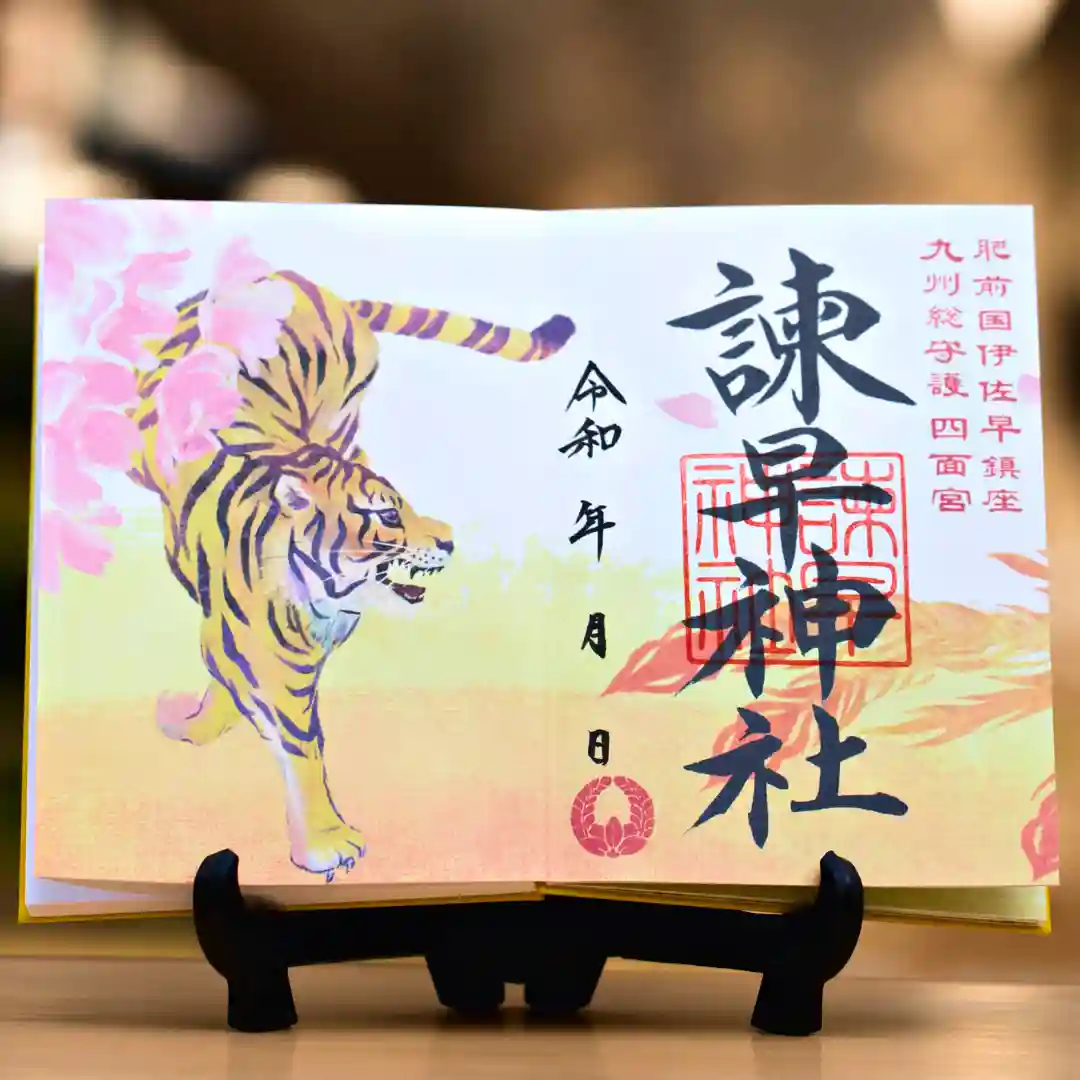 肥前国伊佐早鎮座
九州総守護 四面宮
諫早神社
諫早神社
令和 年 月 日